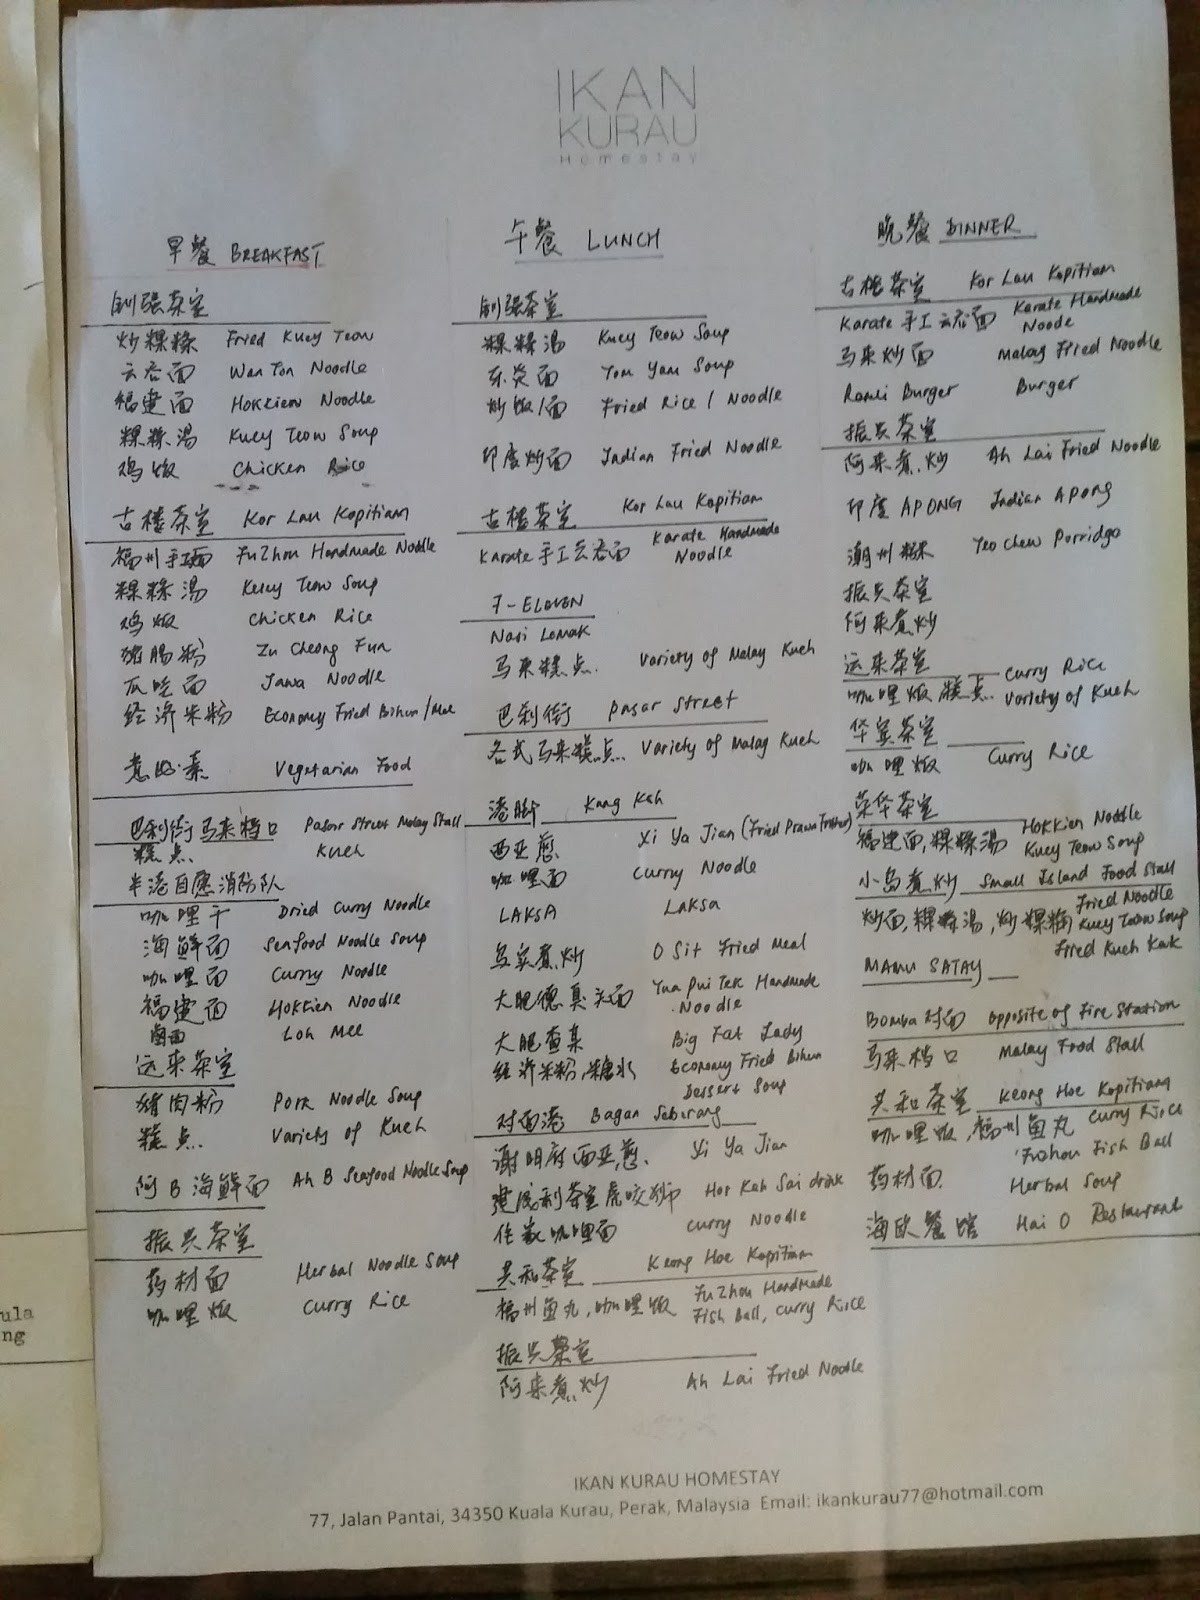 IKAN
KURAU
Homestay
早餐 BREAKFAST
钊强茶室
炒粿粿 Fried Kuey Teow
云吞面 Wan Ton Noodle
福建面 Hokkien Noodle
粿粿汤 Kuey Teow Soup
鸡饭 Chicken Rice
古楼茶室 Kor Lau Kopitiam
福州手工面 FuZhou Handmade Noodle
粿粿汤 Kuey Teow Soup
鸡饭 Chicken Rice
猪肠粉 Zu Cheong Fun
瓜吃面 Jawa Noodle
经济米粉 Economy Fried Bihun/Mee
素 Vegetarian Food
巴刹街马来档口 Pasar Street Malay Stall
糕点 Kueh
半港自愿消防队
咖哩干 Dried Curry Noodle
海鲜面 Seafood Noodle Soup
咖哩面 Curry Noodle
福建面 Hokkien Noodle
卤面 Loh Mee
运来茶室
猪肉粉 Pork Noodle Soup
糕点 Variety of Kueh
阿B海鲜面 Ah B Seafood Noodle Soup
振兴茶室
药材面 Herbal Noodle Soup
咖哩饭 Curry Rice
午餐 LUNCH
钊强茶室
粿粿汤 Kuey Teow Soup
东炎面 Tom Yam Soup
炒饭/面 Fried Rice / Noodle
印度炒面 Indian Fried Noodle
古楼茶室 Kor Lau Kopitiam
Karate 手工云吞面 Karate Handmade Noodle
7-ELEVEN
Nasi Lemak
马来糕点 Variety of Malay Kueh
巴刹街 Pasar Street
各式马来糕点 Variety of Malay Kueh
港脚 Kang Kah
西亚煎 Xi Ya Jian (Fried Prawn Fritter)
咖哩面 Curry Noodle
LAKSA Laksa
乌实煮炒 O Sit Fried Meal
大肥德 面 Yua Pui Tek Handmade Noodle
大肥查某 Big Fat Lady
经济米粉,糖水 Economy Fried Bihun Dessert Soup
对面港 Bagan Seberang
谢明府西亚煎 Xi Ya Jian
建成利茶室虎咬狮 Hor Kah Sai drink
佳 咖哩面 Curry Noodle
共和茶室 Keong Hoe Kopitiam
福州鱼丸,咖哩饭 FuZhou Handmade Fish Ball, Curry Rice
振兴茶室
阿来煮炒 Ah Lai Fried Noodle
晚餐 DINNER
古楼茶室 Kor Lau Kopitiam
Karate 手工云吞面 Karate Handmade Noode
马来炒面 Malay Fried Noodle
Ramli Burger Burger
振兴茶室
阿来煮炒 Ah Lai Fried Noodle
印度 APONG Indian Apong
潮州粥 Teo Chew Porridge
振兴茶室
阿来煮炒
运来茶室
咖哩饭 糕点 Curry Rice Variety of Kueh
华宾茶室
咖哩饭 Curry Rice
荣华茶室
福建面,粿粿汤 Hokkien Noodle Kuey Teow Soup
小岛煮炒 Small Island Food Stall
炒面,粿粿汤,炒粿 Fried Noodle Kuey Teow Soup Fried Kueh Kak
MAMU SATAY
Bomba对面 Opposite of Fire Station
马来档口 Malay Food Stall
共和茶室 Keong Hoe Kopitiam
咖哩饭,福州鱼丸 Curry Rice Fuzhou Fish Ball
药材面 Herbal Soup
海欧餐馆 Hai O Restaurant
IKAN KURAU HOMESTAY
77, Jalan Pantai, 34350 Kuala Kurau, Perak, Malaysia Email: ikankurau77@hotmail.com
ula
ng